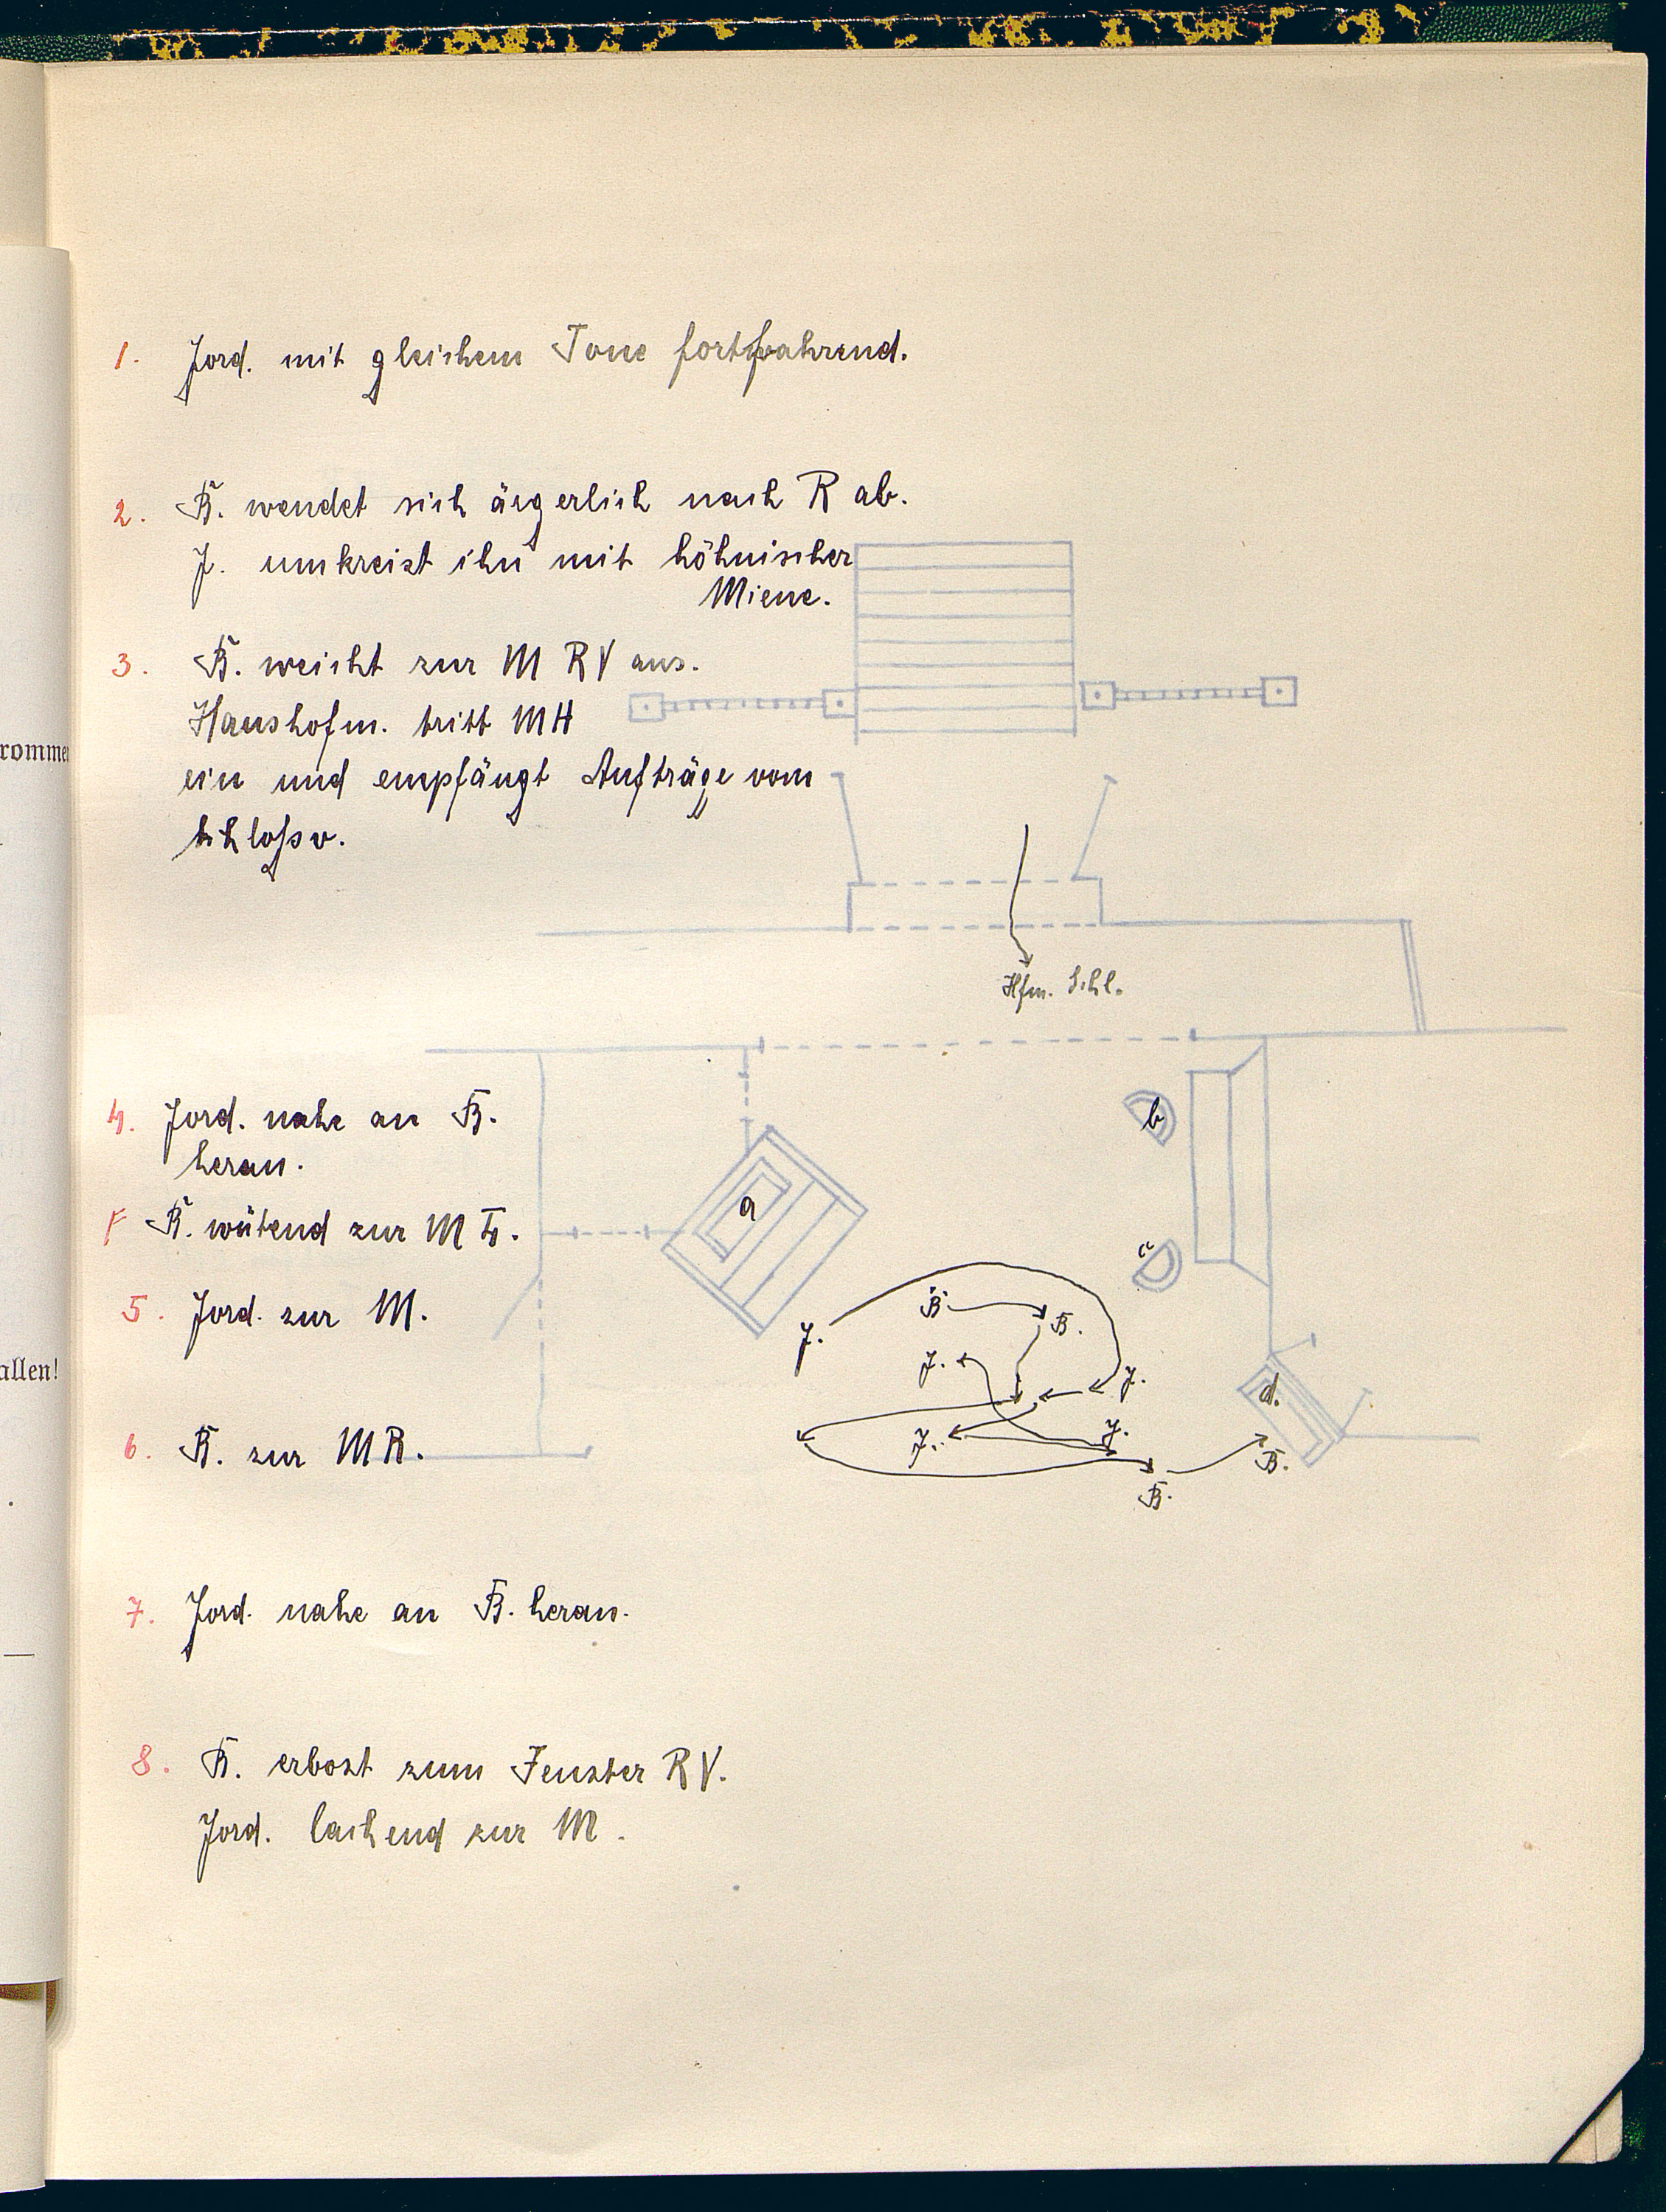 1. Jord. mit gleichem Tone fortfahrend.
2. B. wendet sich ärgerlich nach R ab.
J. umkreist ihn mit höhnischer
Miene.
3. B. weicht zur M R V aus.
Haushofm. tritt MH
ein und empfängt Aufträge vom
Schloßv.
Hfm. Schl.
4. Jord. nahe an B.
heran.
B. wütend zur M L.
5. Jord. zur M.
6. B. zur M R.
7. Jord. nahe an B. heran.
8. B. erbost zum Fenster R V.
Jord. lachend zur M.
a
b
c
d.
J.
B
B.
J.
J.
J.
J.
B.
B.
allen!